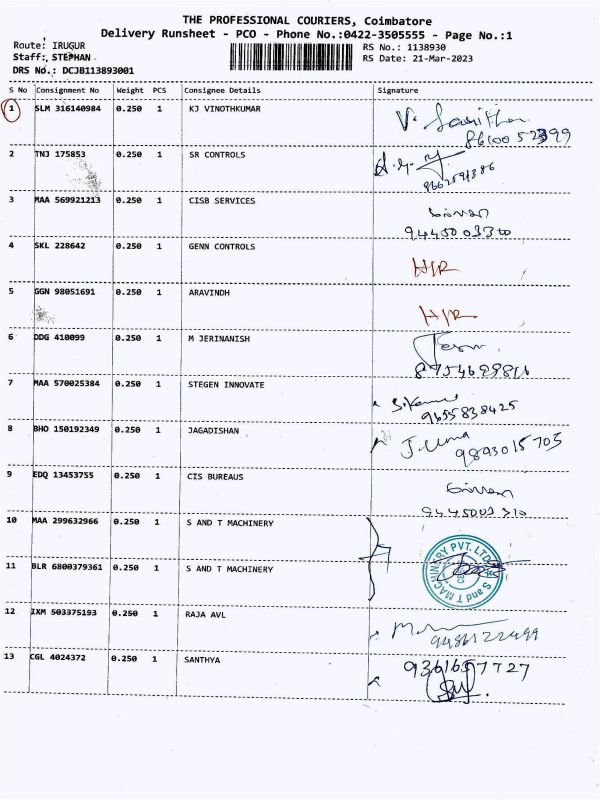 THE PROFESSIONAL COURIERS, Coimbatore
Delivery Runsheet - PCO - Phone No.:0422-3505555 - Page No.:1
Route: IRUGUR
RS No.: 1138930
Staff: STEPHAN
RS Date: 21-Mar-2023
DRS No.: DCJB113893001
S No Consignment No Weight PCS Consignee Details Signature
1 SLM 316140984 0.250 1 KJ VINOTHKUMAR
2 TNJ 175853 0.250 1 SR CONTROLS
3 MAA 569921213 0.250 1 CISB SERVICES
9445003310
4 SKL 228642 0.250 1 GENN CONTROLS H/R
5 GGN 98051691 0.250 1 ARAVINDH H/R
6 DDG 410099 0.250 1 M JERINANISH
7 MAA 570025384 0.250 1 STEGEN INNOVATE
9655838425
8 BHO 150192349 0.250 1 JAGADISHAN J. Uma
9893015703
9 EDQ 13453755 0.250 1 CIS BUREAUS
9445003310
10 MAA 299632966 0.250 1 S AND T MACHINERY
11 BLR 6800379361 0.250 1 S AND T MACHINERY
S and T MACHINERY PVT. LTD.
12 IXM 503375193 0.250 1 RAJA AVL
9486122499
13 CGL 4024372 0.250 1 SANTHYA